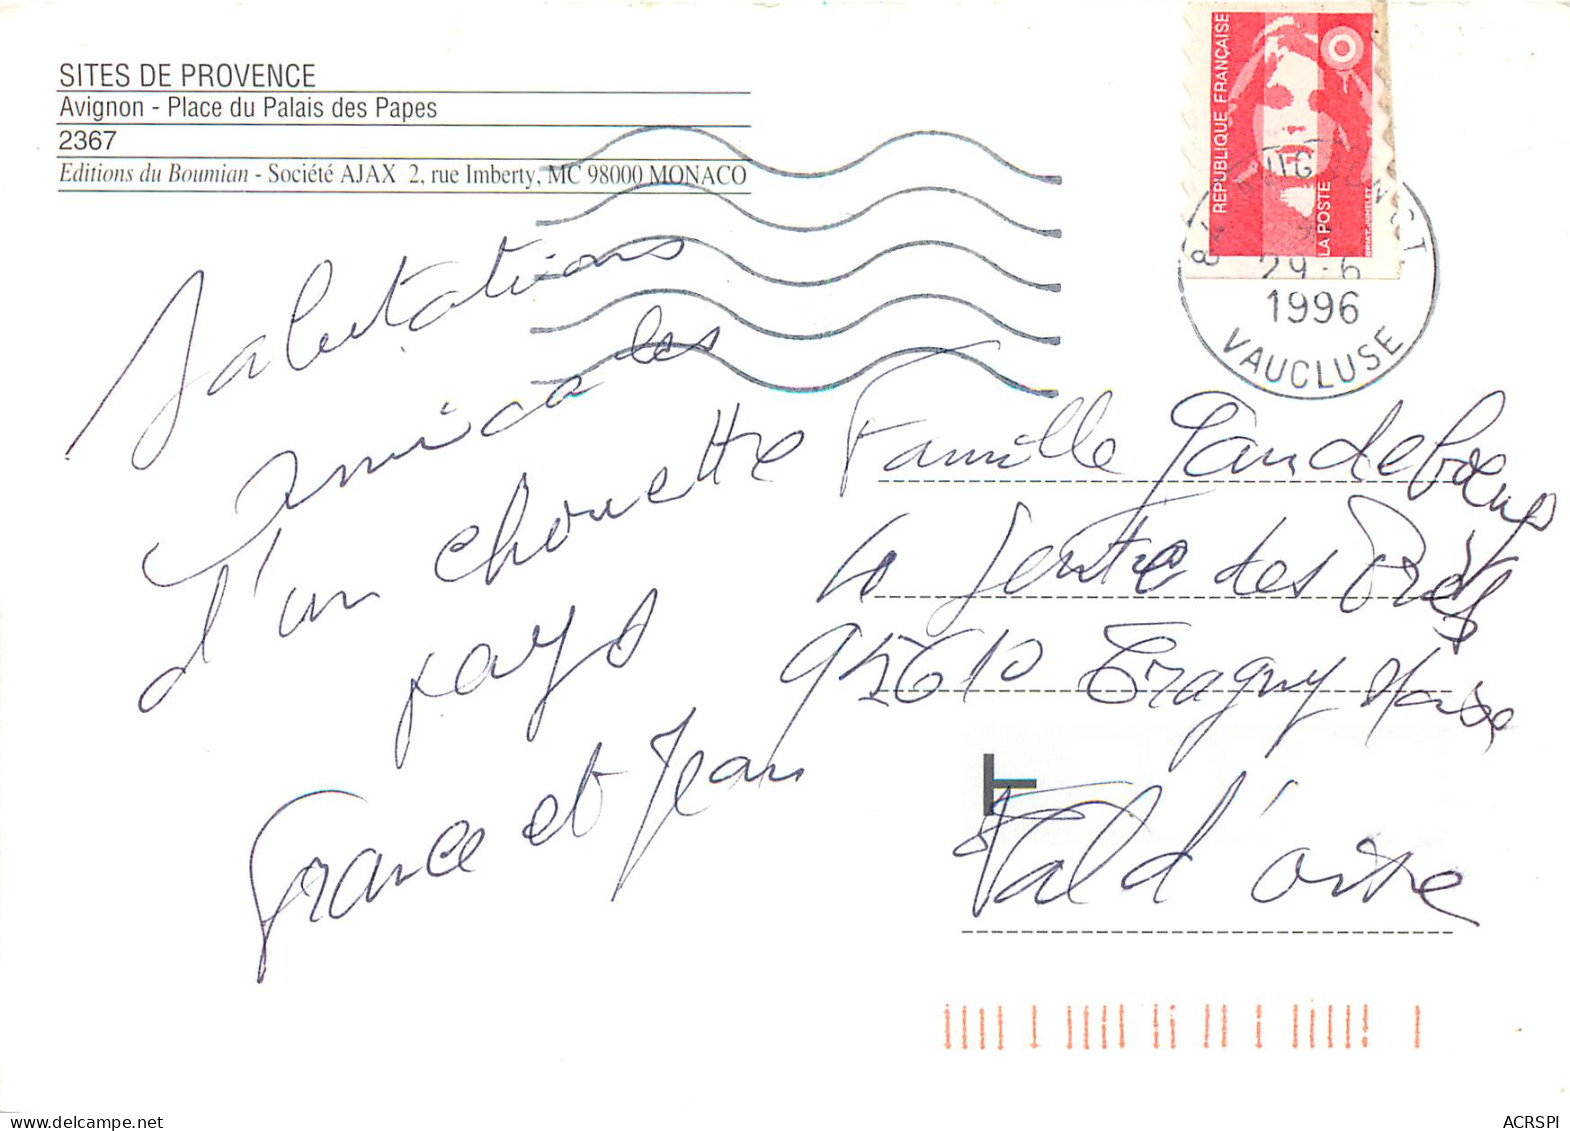 SITES DE PROVENCE
Avignon - Place du Palais des Papes
2367
Editions du Boumian - Société AJAX 2, rue Imberty, MC 98000 MONACO
REPUBLIQUE FRANÇAISE
LA POSTE
BRIAT-JUMELET
84 AVIGNON C.T.
29-6
1996
VAUCLUSE
Salutations
amicales
d'un chouette
pays
France et Jean
Famille Gandeboeuf
Sente des Prés
95610 Eragny
T
Val d'oise
ACRSPI